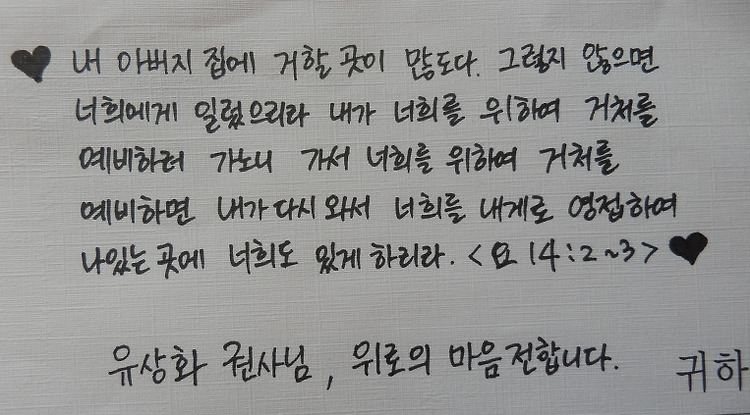 ♥ 내 아버지 집에 거할 곳이 많도다. 그렇지 않으면
너희에게 일렀으리라 내가 너희를 위하여 거처를
예비하러 가노니 가서 너희를 위하여 거처를
예비하면 내가 다시 와서 너희를 내게로 영접하여
나있는 곳에 너희도 있게 하리라. <요 14:2~3> ♥
유상화 권사님, 위로의 마음전합니다.
귀하